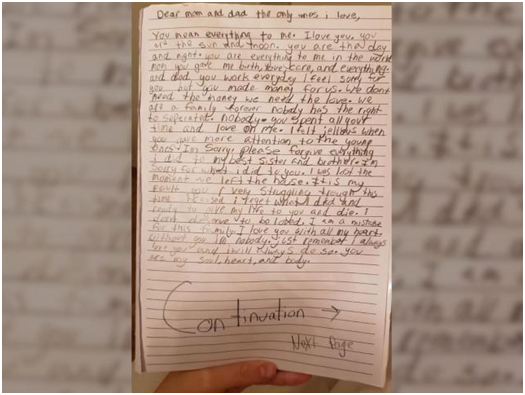 Dear mom and dad the only ones i love,
You mean everything to me. I love you. you
are the sun and moon. you are the day
and night. you are everything to me in the world
mom you gave me birth, love, care, and everything.
and dad you work everyday I feel sorry for
you but you made money for us. We dont
need the money we need the love. We
are a family forever nobody has the right
to seperate. nobody. you spent all your
time and love on me. I felt jelleus when
you give more attention to the young
ones. Im Sorry. please forgive everything
I did to my best sister and brother. I'm
sorry for what i did to you. I was lost the
moment we left the house. It is my
fault you r very struggling trough this
time i regret what I did and
ready to give my life to you and die. i
dont deserve to be loved. I am a mistake
for this family. I love you with all my heart.
without you im nobody. just remember I always
love you and i will always do so. you
are my soul, heart, and body.
Continuation →
Next Page